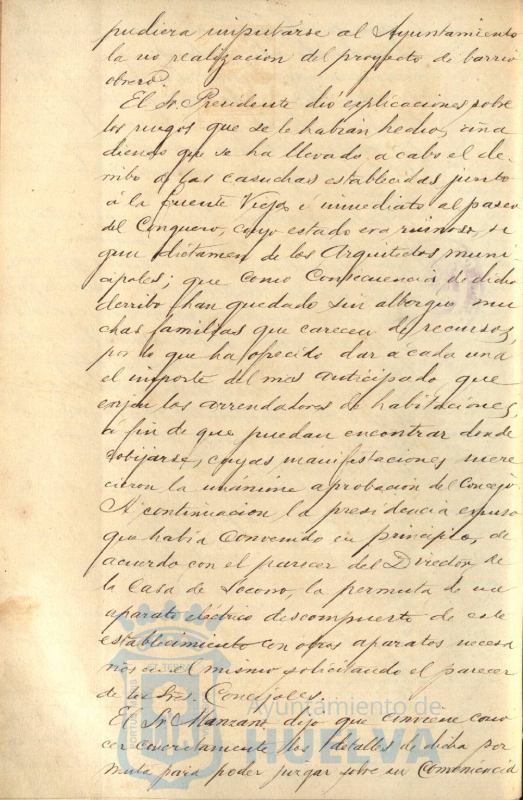 pudiera imputarse al Ayuntamiento
la no realizacion del proyecto de barrio
obrero.
El Sr. Presidente dió explicaciones sobre
los ruegos que se le habian hecho, aña
diendo que se ha llevado a cabo el de-
rribo de las casuchas establecidas junto
á la Fuente Vieja é inmediato al paseo
del Conquero, cuyo estado era ruinoso, se
gun dictamen de los Arquitectos muni
cipales; que como consecuencia de dicho
derribo han quedado sin albergue mu
chas familias que carecen de recursos,
por lo que ha ofrecido dar á cada una
el importe del mes anticipado que
exijen los arrendadores de habitaciones,
á fin de que puedan encontrar donde
cobijarse, cuyas manifestaciones mere
cieron la unánime aprobacion del Concejo.
A continuacion la presidencia expuso
que había convenido en principio, de
acuerdo con el parecer del Director de
la Casa de Socorro, la permuta de un
aparato eléctrico descompuesto de este
establecimiento con otros aparatos necesa
rios en el mismo solicitando el parecer
de los Sres. Concejales.
El Sr. Manzano dijo que conviene cono
cer concretamente los detalles de dicha per
muta para poder juzgar sobre su conveniencia
Ayuntamiento de
HUELVA